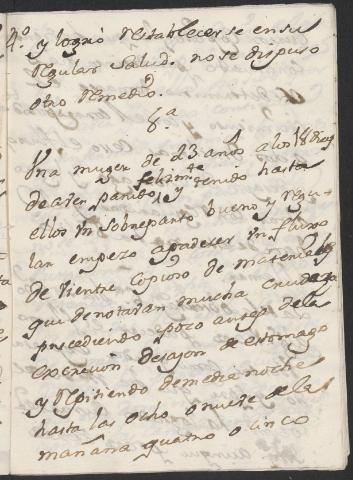 4.º y logró restablecerse en su
regular salud. no se dispuso
otro remedio.
8.ª
Una muger de 23 años a los 18 dias
de aver parido felizmte y tenido hasta
ellos un sobreparto bueno y regu-
lar empezo apadeser un fluxo
de vientre copioso de materiales
que denotavan mucha crudeza
presediendo poco antes de la
excresion desazon de estomago
y repitiendo de media noche
hasta las ocho o nueve de la
mañana quatro o cinco